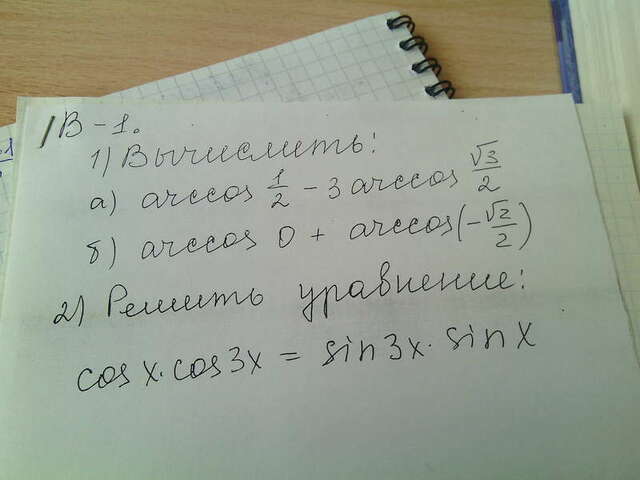 В-1.
1) Вычислить:
а) arccos 1/2 - 3 arccos √3/2
б) arccos 0 + arccos(-√2/2)
2) Решить уравнение:
cos x · cos 3x = sin 3x · sin x